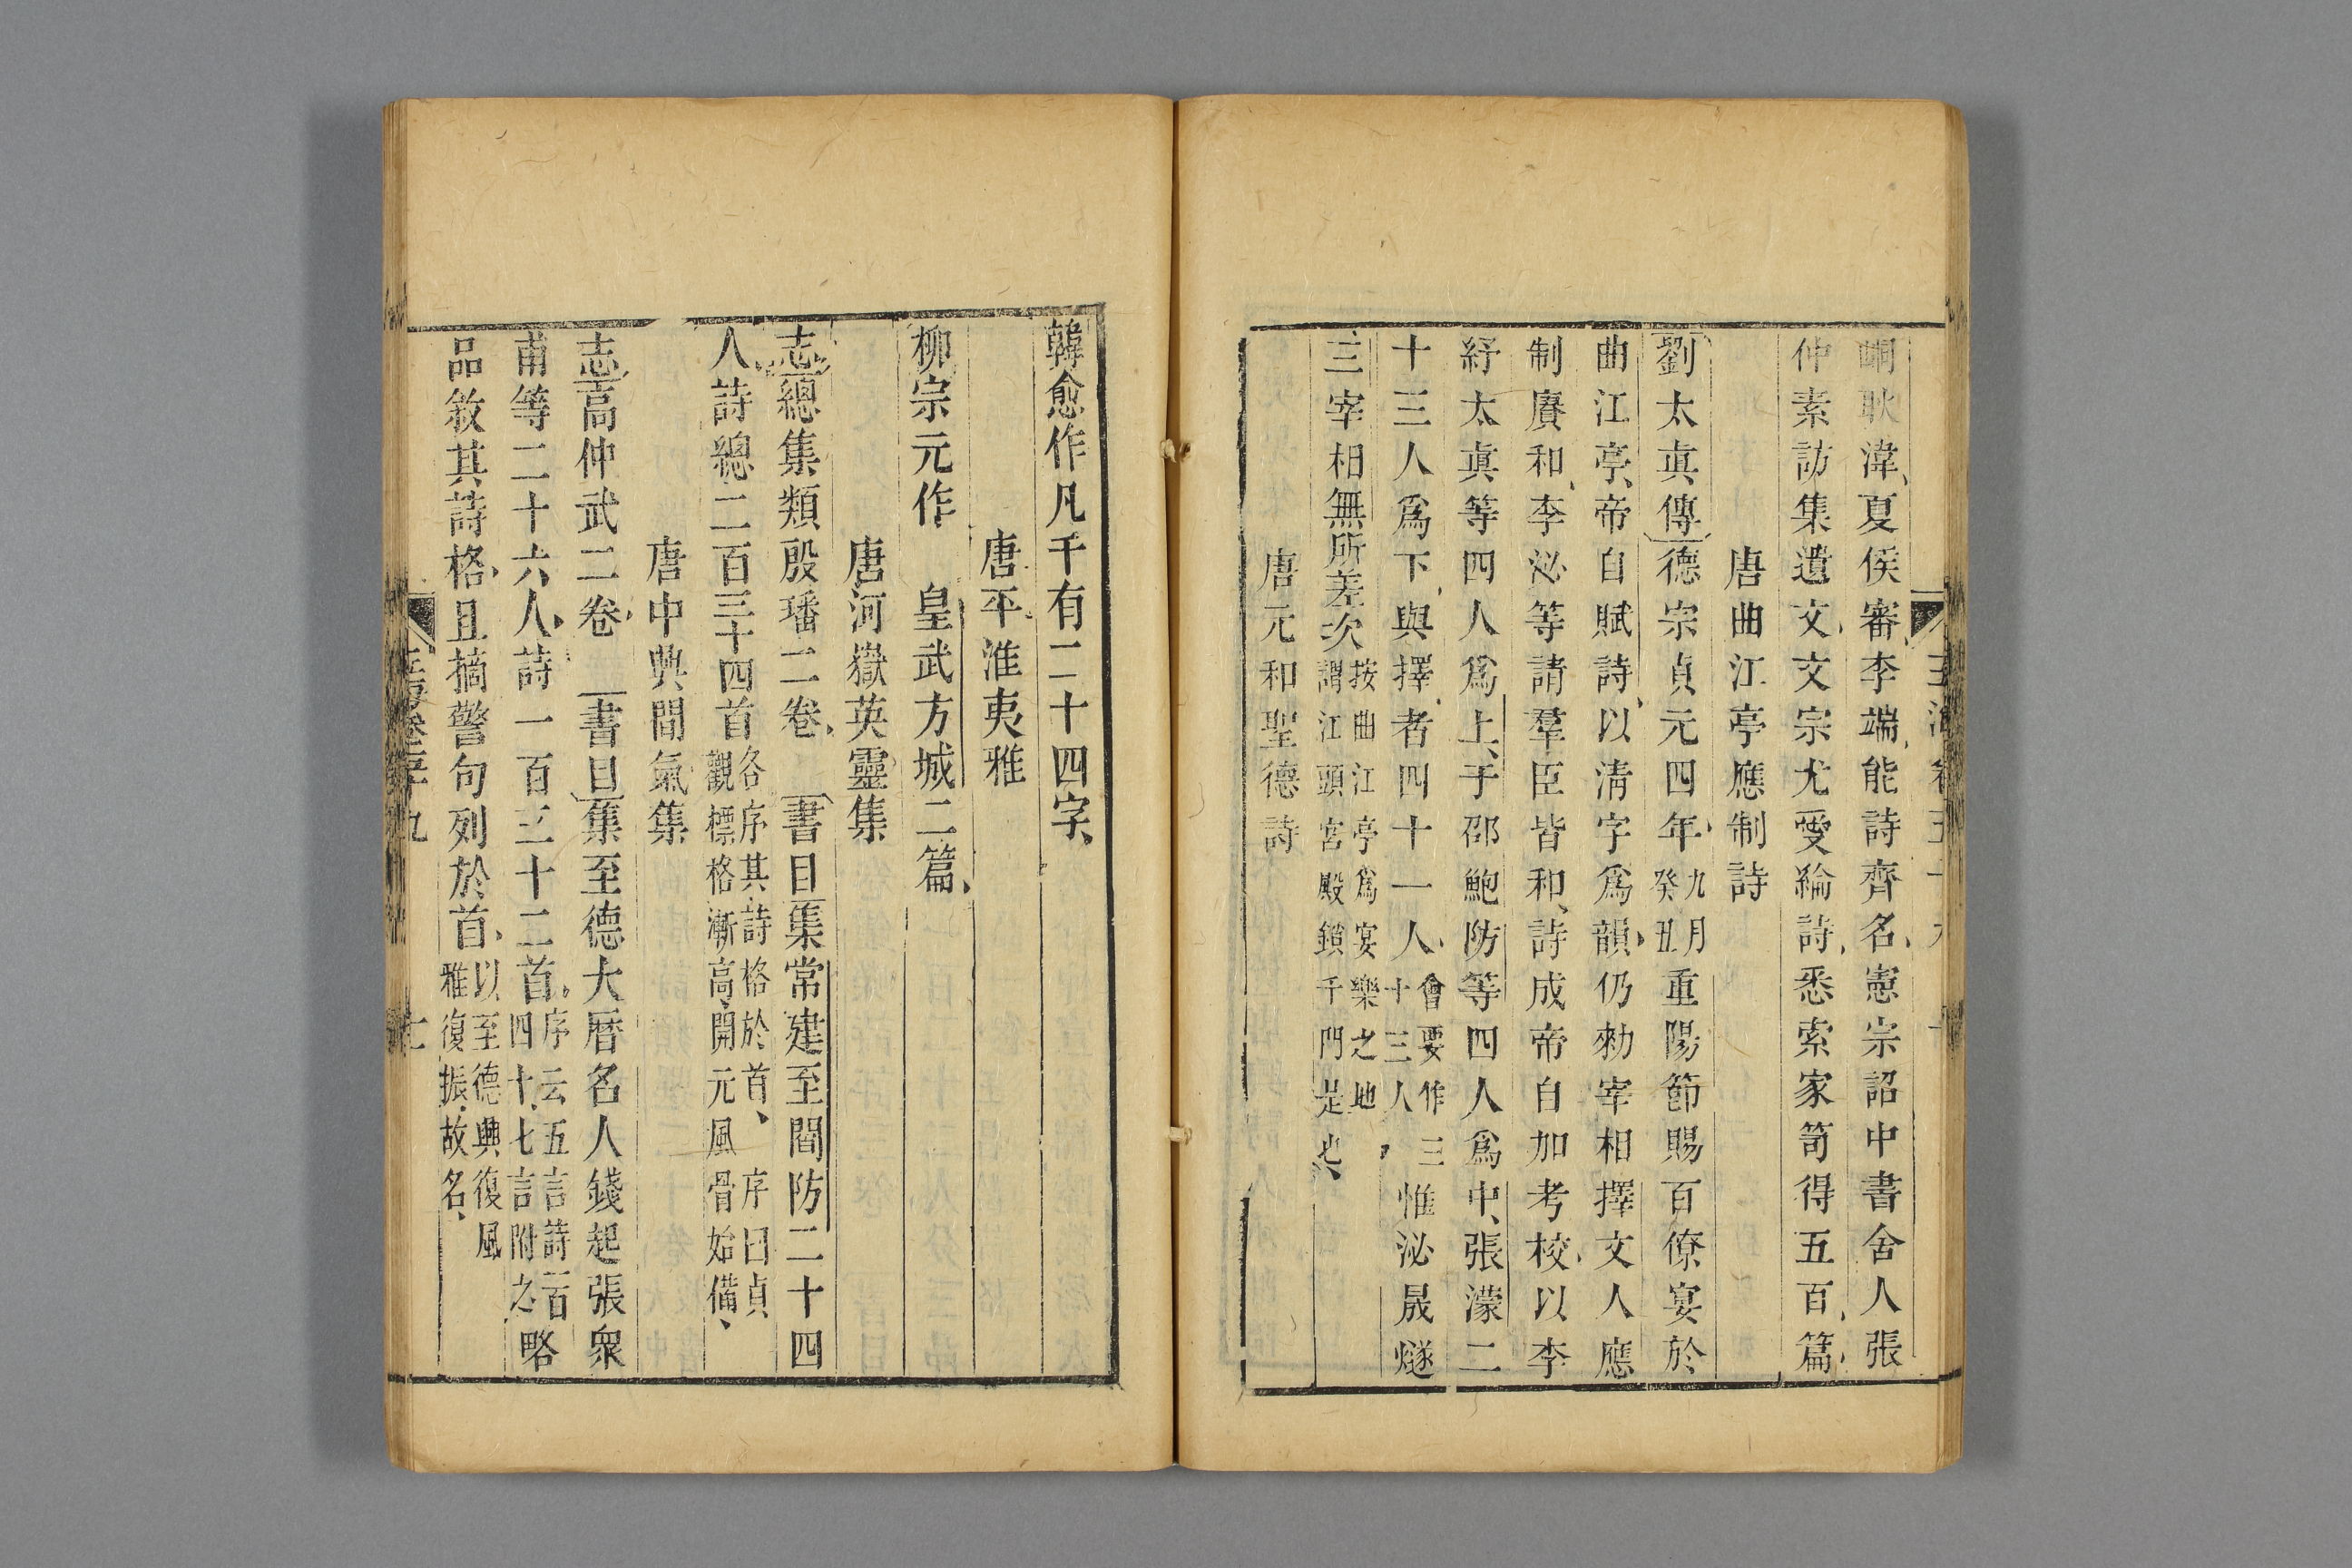 峒耿湋夏侯審李端能詩齊名憲宗詔中書舍人張
仲素訪集遺文文宗尤愛綸詩悉索家笥得五百篇
唐曲江亭應制詩
劉太眞傳德宗貞元四年九月癸丑重陽節賜百僚宴於
曲江亭帝自賦詩以淸字爲韻仍勑宰相擇文人應
制賡和李泌等請羣臣皆和詩成帝自加考校以李
紓太眞等四人爲上于邵鮑防等四人爲中張濛二
十三人爲下與擇者四十一人會要作三十三人惟泌晟燧
三宰相無所差次按曲江亭爲宴樂之地謂江頭宮殿鎖千門是也
唐元和聖德詩
韓愈作凡千有二十四字
唐平淮夷雅
柳宗元作 皇武方城二篇
唐河嶽英靈集
志總集類殷璠二卷 書目集常建至閻防二十四
人詩總二百三十四首各序其詩格於首 序曰貞觀標格漸高開元風骨始備
唐中興間氣集
志高仲武二卷 書目集至德大曆名人錢起張衆
甫等二十六人詩一百三十二首序云五言詩一百四十七言附之略
品敘其詩格且摘警句列於首以至德興復風雅復振故名